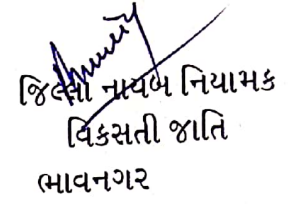 જિલ્લા નાયબ નિયામક
વિકસતી જાતિ
ભાવનગર